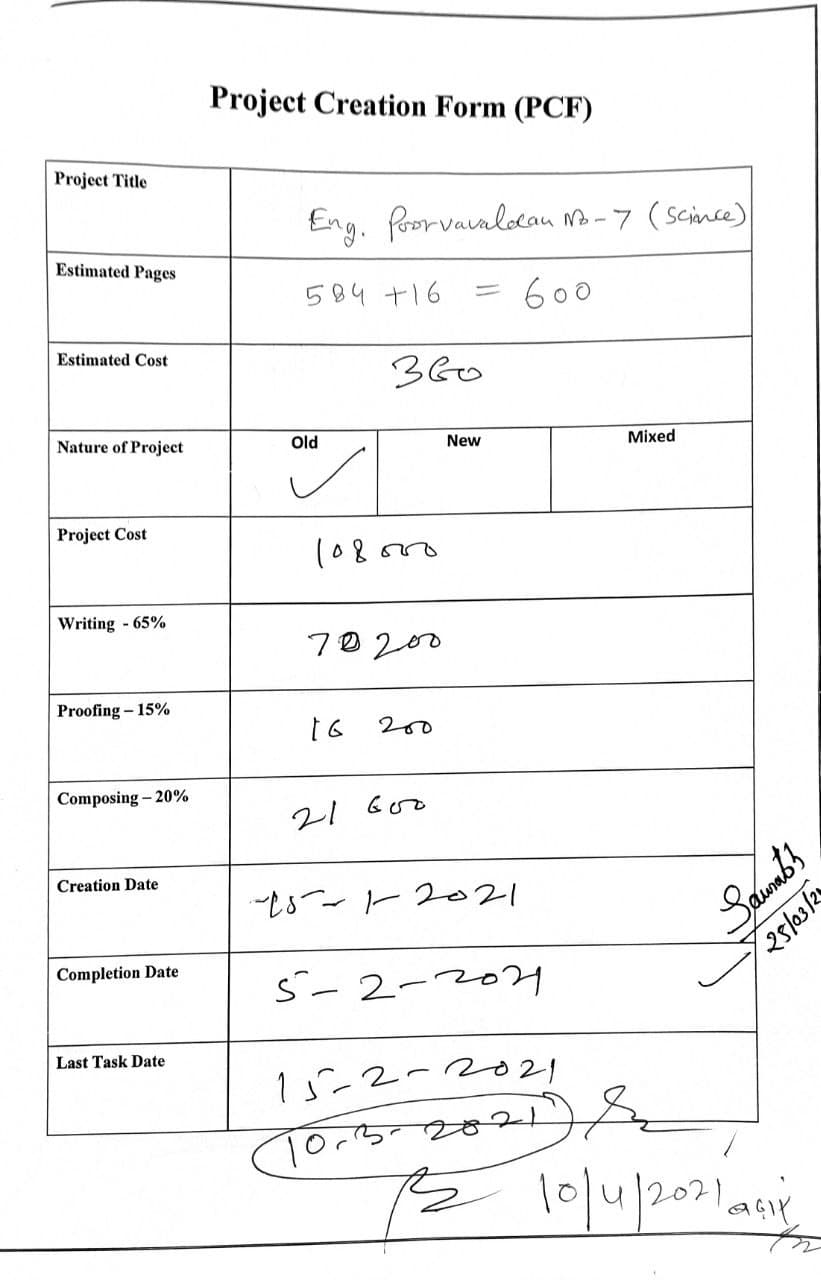 Project Creation Form (PCF)
Project Title
Eng. Poorvavalokan No-7 (Science)
Estimated Pages
584 +16 = 600
Estimated Cost
360
Nature of Project Old New Mixed
✓
Project Cost
108000
Writing - 65%
70200
Proofing – 15%
16 200
Composing – 20%
21 600
Creation Date
15-1-2021
Saurabh
25/03/21
Completion Date
5-2-2021
✓
Last Task Date
15-2-2021
10-3-2021
10/4/2021